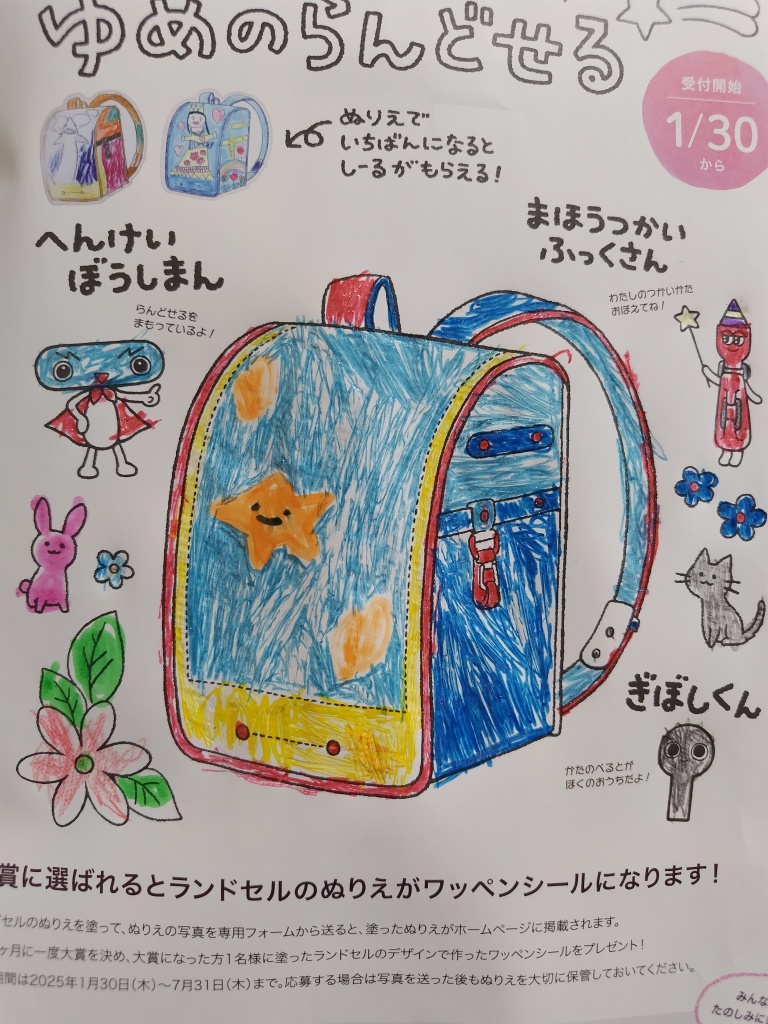 ゆめのらんどせる
受付開始
1/30
から
ぬりえで
いちばんになると
しーるがもらえる!
へんけい
ぼうしまん
らんどせるを
まもっているよ!
まほうつかい
ふっくさん
わたしのつかいかた
おぼえてね!
ぎぼしくん
かたのべるとが
ぼくのおうちだよ!
賞に選ばれるとランドセルのぬりえがワッペンシールになります!
セルのぬりえを塗って、ぬりえの写真を専用フォームから送ると、塗ったぬりえがホームページに掲載されます。
ヶ月に一度大賞を決め、大賞になった方1名様に塗ったランドセルのデザインで作ったワッペンシールをプレゼント!
期間は2025年1月30日(木)〜7月31日(木)まで。応募する場合は写真を送った後もぬりえを大切に保管しておいてください。
みんな
たのしみに